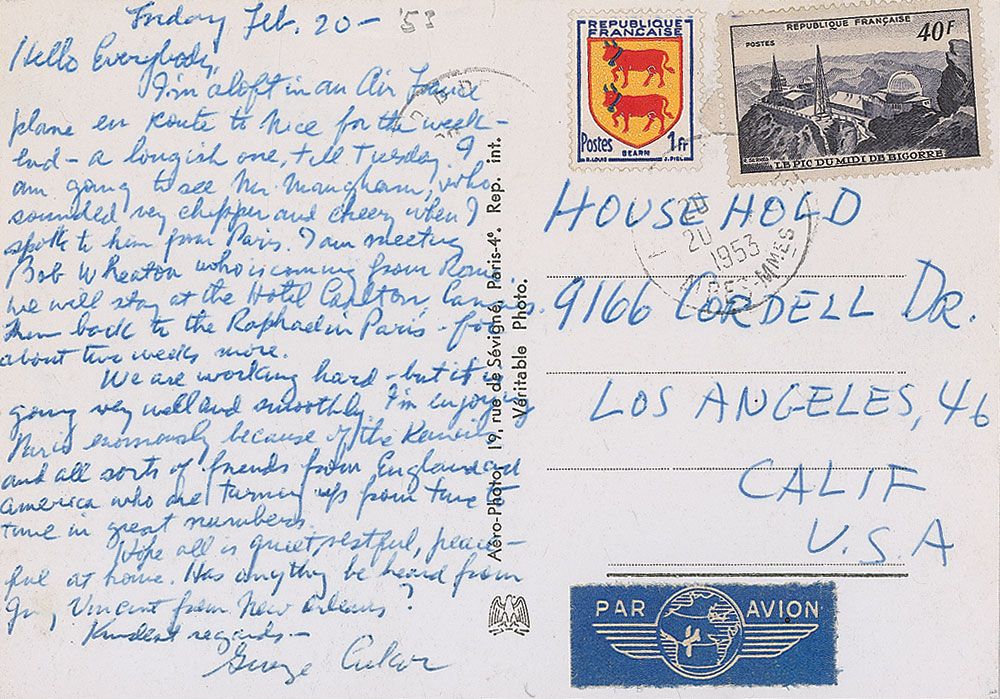 Friday Feb. 20 - '53
Hello Everybody,
I'm aloft in an Air France
plane en route to Nice for the week-
end - a longish one, till Tuesday. I
am going to see Mr. Maugham, who
sounded very chipper and cheery when I
spoke to him from Paris. I am meeting
Bob Wheaton who is coming from Rome
we will stay at the Hotel Carlton, Cannes.
Then back to the Raphael in Paris - for
about two weeks more.
We are working hard - but it is
going very well and smoothly. I'm enjoying
Paris enormously because of the
and all sorts of friends from England and
America who are turning up from time to
time in great numbers.
Hope all is quiet, restful, peace-
ful at home. Has anything be heard from
Vincent from New Orleans?
Kindest regards -
George Cukor
Aéro-Photo, 19, rue de Sévigné, Paris-4e. Rep. int.
Véritable Photo.
REPUBLIQUE
FRANÇAISE
Postes 1Fr
BEARN
REPUBLIQUE FRANÇAISE
POSTES
40F
LE PIC DU MIDI DE BIGORRE
20
20
1953
ALPES-MMES
HOUSEHOLD
9166 CORDELL DR.
LOS ANGELES, 46
CALIF
U.S.A
PAR AVION